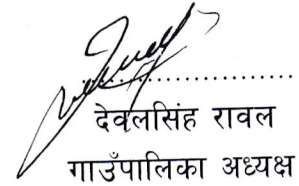 देवलसिंह रावल
गाउँपालिका अध्यक्ष